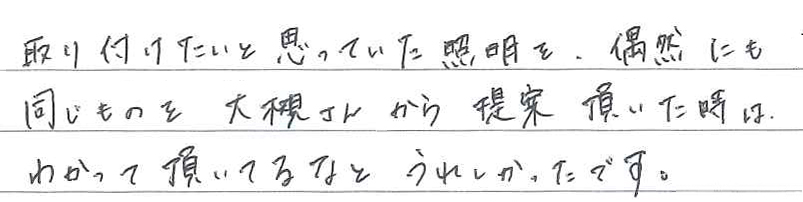 取り付けたいと思っていた照明を、偶然にも
同じものを大槻さんから提案頂いた時は、
わかって頂いてるなとうれしかったです。